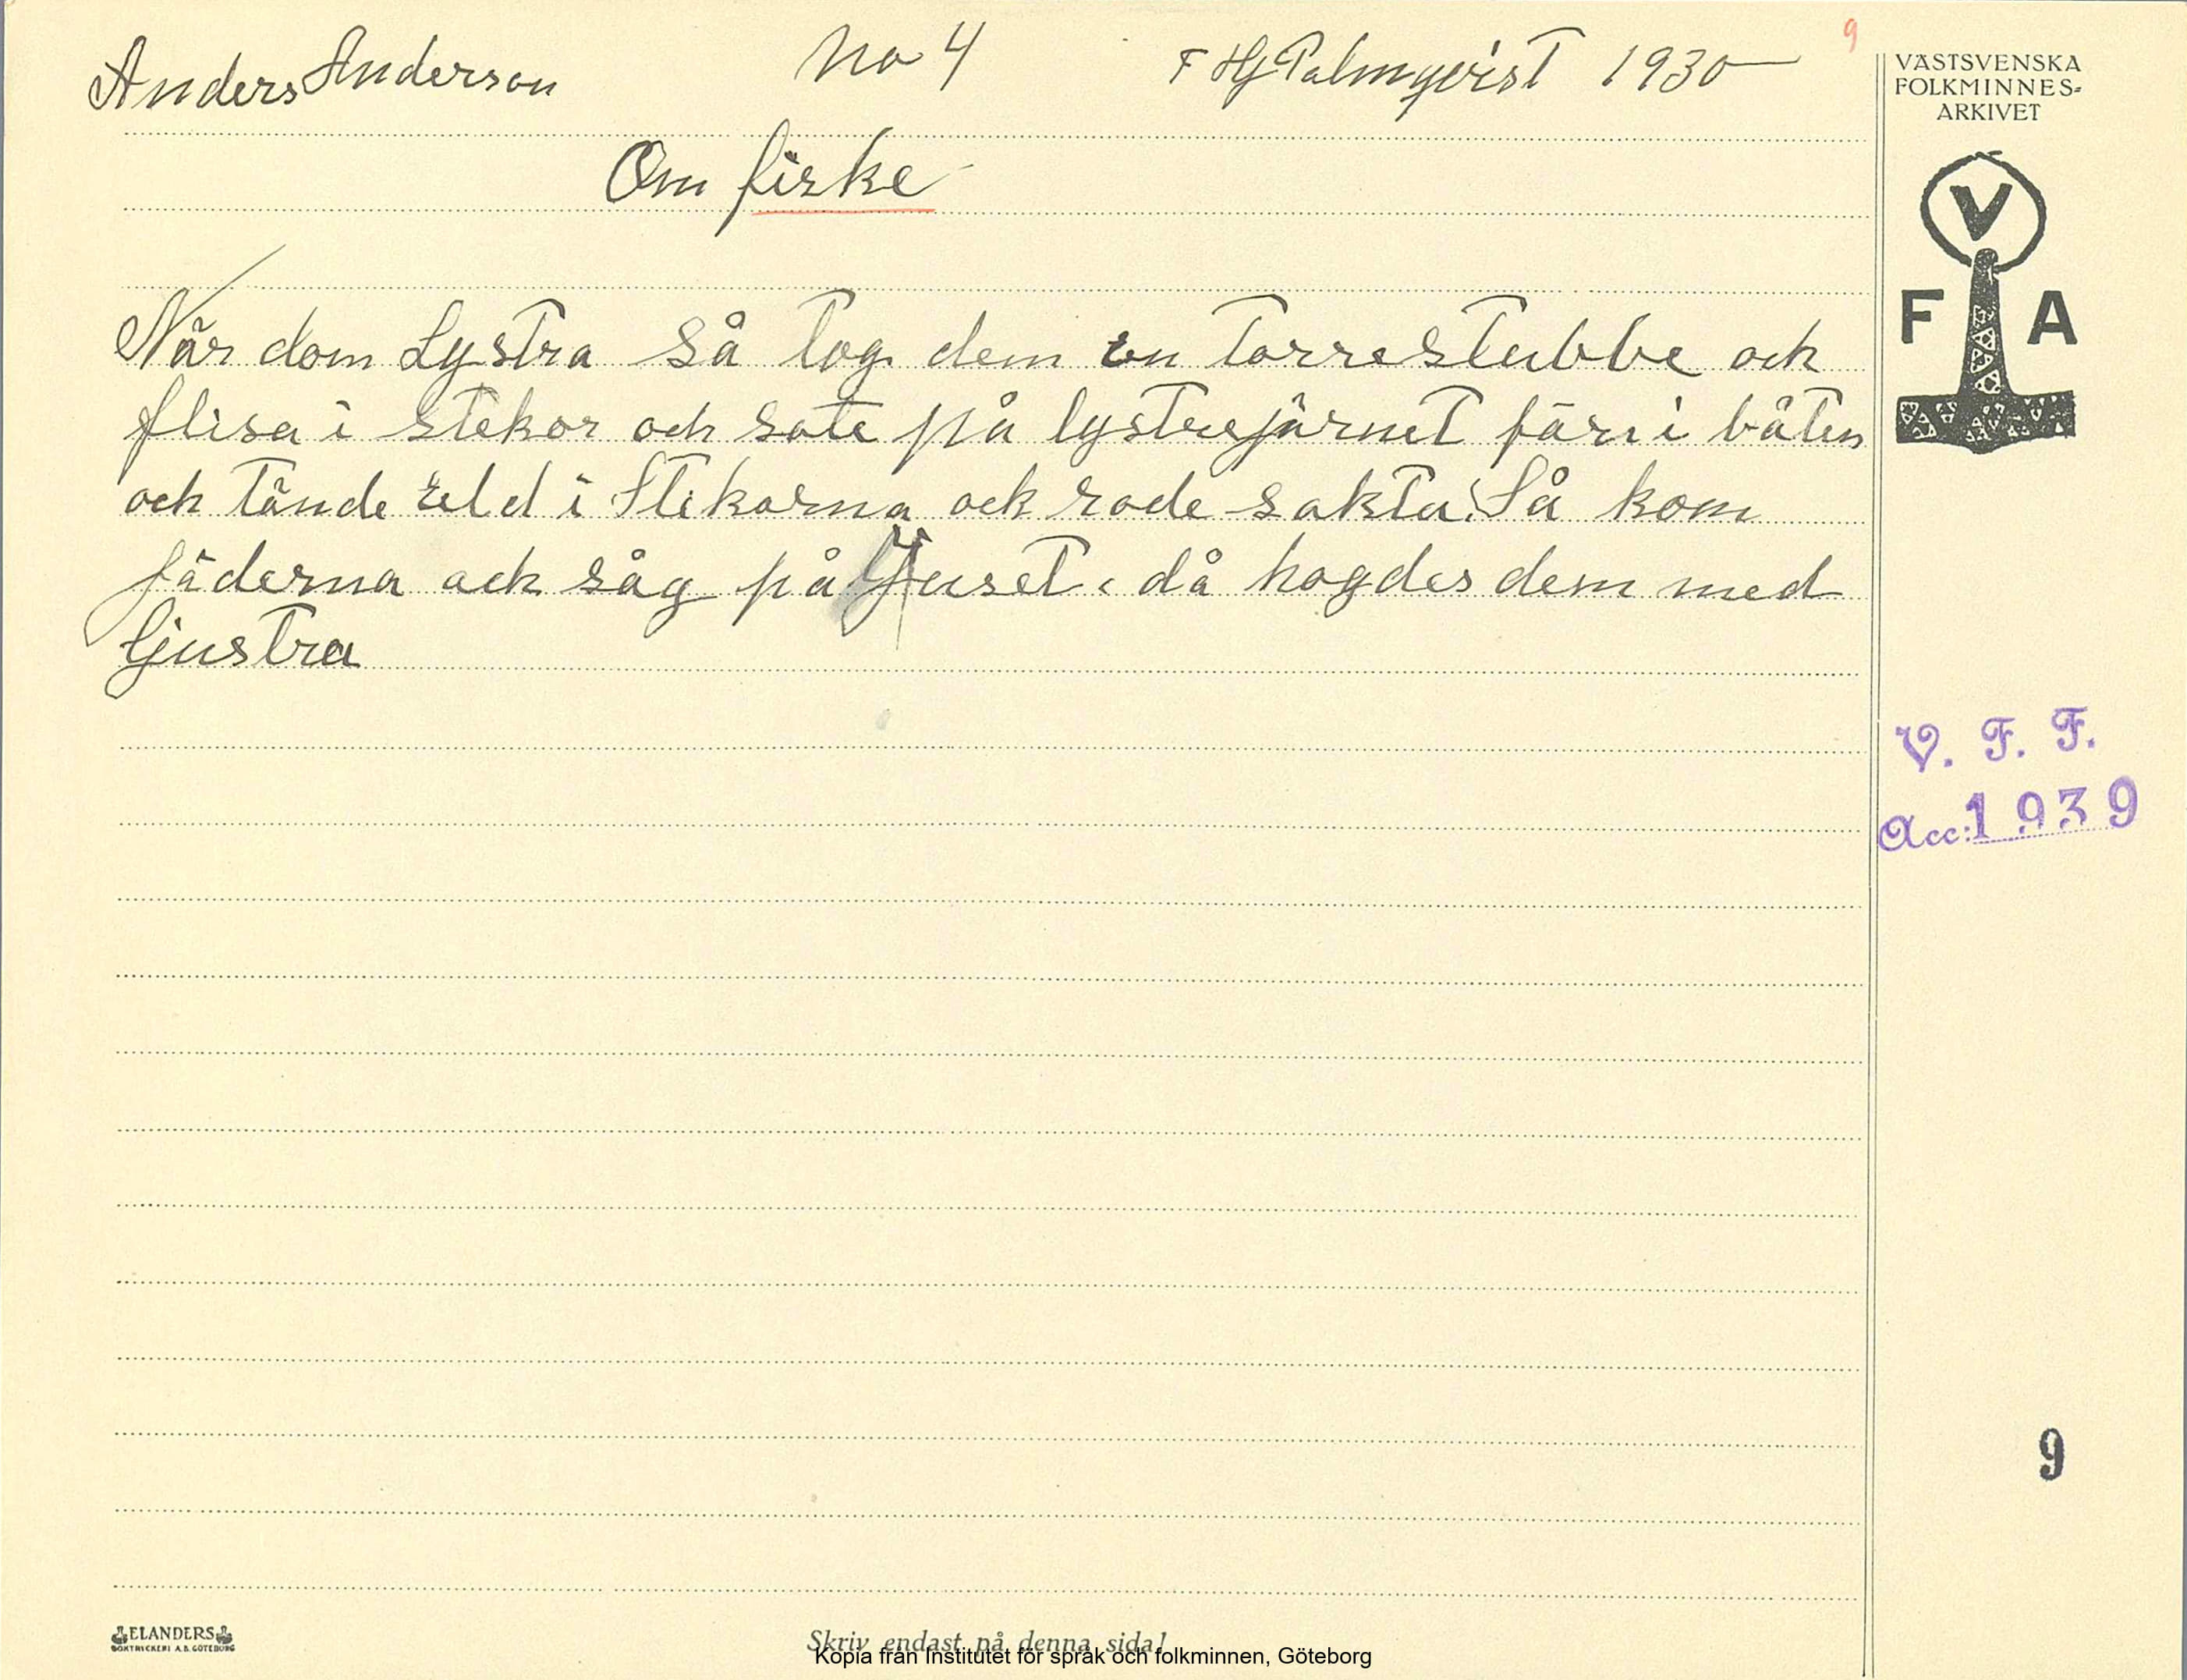 Anders Anderson No 4 F Hj Palmqvist 1930 9
Om fiske
När dom Lystra så tog dem en torrestubbe och
flisa i stekor och sate på lystrejärnet färi i båten
och tände eld i Stekorna ock rode sakta. Så kom
fäderna ock såg på ljuset. då hogdes dem med
ljustra
VÄSTSVENSKA
FOLKMINNES-
ARKIVET
V
F A
V. F. F.
Acc: 1939
9
ELANDERS
BOKTRYCKERI A.B. GÖTEBORG
Skriv endast på denna sida!
Kopia från Institutet för språk och folkminnen, Göteborg